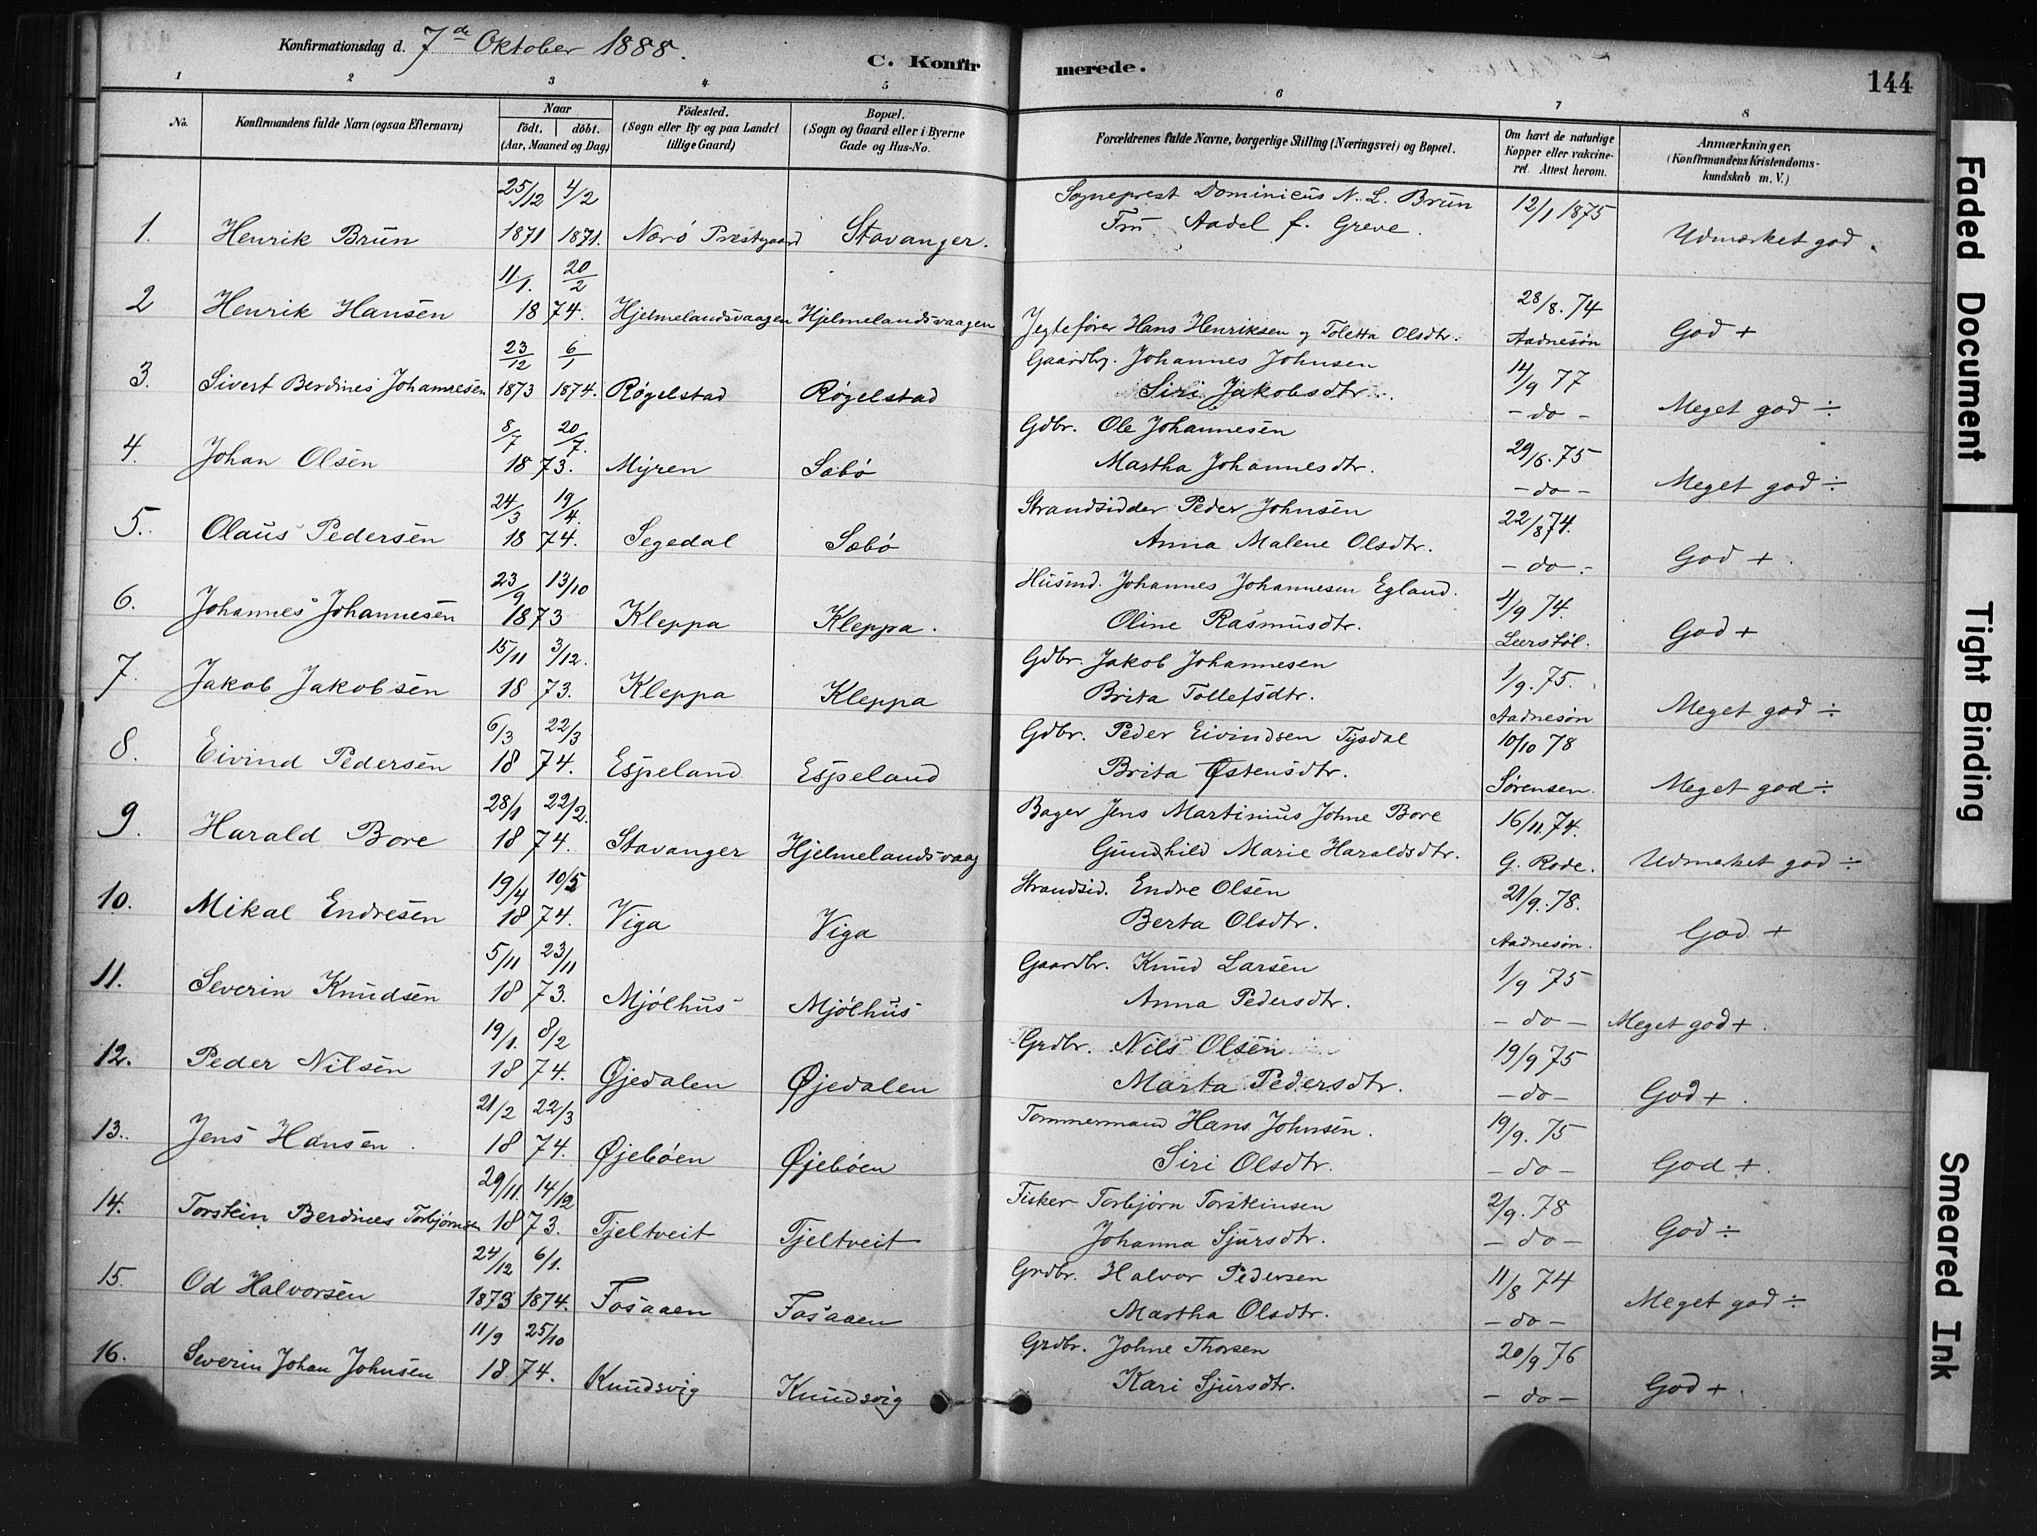 Konfirmationsdag d. 7de Oktober 1888.
C. Konfirmerede.
144
1 2 3 4 5 6 7 8
No. Konfirmandens fulde Navn (ogsaa Efternavn) Naar født. døbt. (Aar, Maaned og Dag) Fødested. (Sogn eller By og paa Landet tillige Gaard) Bopæl. (Sogn og Gaard eller i Byerne Gade og Hus-No. Forældrenes fulde Navne, borgerlige Stilling (Næringsvei) og Bopæl. Om havt de naturlige Kopper eller vakcineret. Attest herom. Anmærkninger. (Konfirmandens Kristendomskundskab m. V.)
25/12 4/2 Sogneprest Dominicus N. L. Brun 12/1 1875
1. Henrik Brun 1871 1871. Nærø Prestgaard Stavanger. Fru Aadel f. Greve. Udmærket god.
11/1. 20/2 28/8. 74
2 Henrik Hansen 1874. Hjelmelandsvaagen Hjelmelandsvaagen Jegtefører Hans Henriksen og Toletta Olsdtr. Aadnesøn God +
23/12 6/1 Gaardbr. Johannes Johnsen 14/9 77
3. Sivert Berdines Johannesen 1873 1874. Røgelstad Røgelstad Siri Jakobsdtr. - do - Meget god ÷
8/7 20/7. Gdbr. Ole Johannesen 29/6. 75
4. Johan Olsen 1873. Myren Sæbø Martha Johannesdtr. - do - Meget god ÷
24/3 19/4. Strandsidder Peder Johnsen 22/8 74.
5. Olaus Pedersen 1874. Segedal Sæbø Anna Malene Olsdtr. - do - God +
23/9 13/10 Husmd. Johannes Johannesen Egland. 4/9 74.
6. Johannes Johannesen 1873 Kleppa Kleppa. Oline Rasmusdtr. Leerstøl. God +
15/11 3/12. Gdbr. Jakob Johannesen 1/9. 75.
7. Jakob Jakobsen 1873. Kleppa Kleppa Brita Tollefsdtr. Aadnesøn Meget god ÷
6/3 22/3 Gdbr. Peder Eivindsen Tysdal 10/10 78
8. Eivind Pedersen 1874. Espeland Espeland Brita Østensdtr. Sørensen. Meget god ÷
28/1 22/2. Bager Jens Martinius Johne Bore 16/11. 74.
9. Harald Bore 1874. Stavanger Hjelmelandsvaag Gundhild Marie Haraldsdtr. G. Rode. Udmerket god ÷
19/4 10/5 Strandsid. Endre Olsen 21/9. 78.
10. Mikal Endresen 1874. Viga Viga Berta Olsdtr. Aadnesøn. God +
5/11 23/11 Gaardbr. Knud Larsen 1/9 75
11. Severin Knudsen 1873. Mjølhus Mjølhus Anna Pedersdtr. - do - Meget god +.
19/1. 8/2 Grdbr. Nils Olsen 19/9 75
12. Peder Nilsen 1874. Øjedalen Øjedalen Marta Pedersdtr. - do - God +.
21/2 22/3 Tømmermand Hans Johnsen. 19/9. 75
13. Jens Hansen 1874. Øjebøen Øjebøen Siri Olsdtr. - do - God +.
29/11. 14/12 Fisker Torbjørn Torsteinsen 2/9. 78
14. Torstein Berdines Torbjørnsen 1873. Tjeltveit Tjeltveit Johanna Sjursdtr. - do - God ÷
24/12 6/1. Grdbr. Halvor Pedersen 11/8 74
15. Od Halvorsen 1873 1874. Fosaaen Fosaaen Martha Olsdtr. - do - Meget god ÷
11/9 25/10 Grdbr. Johne Thorsen 20/9 76
16. Severin Johan Johnsen 1874. Knudsvig Knudsvig Kari Sjursdtr. - do - God +.
Faded Document
Tight Binding
Smeared Ink